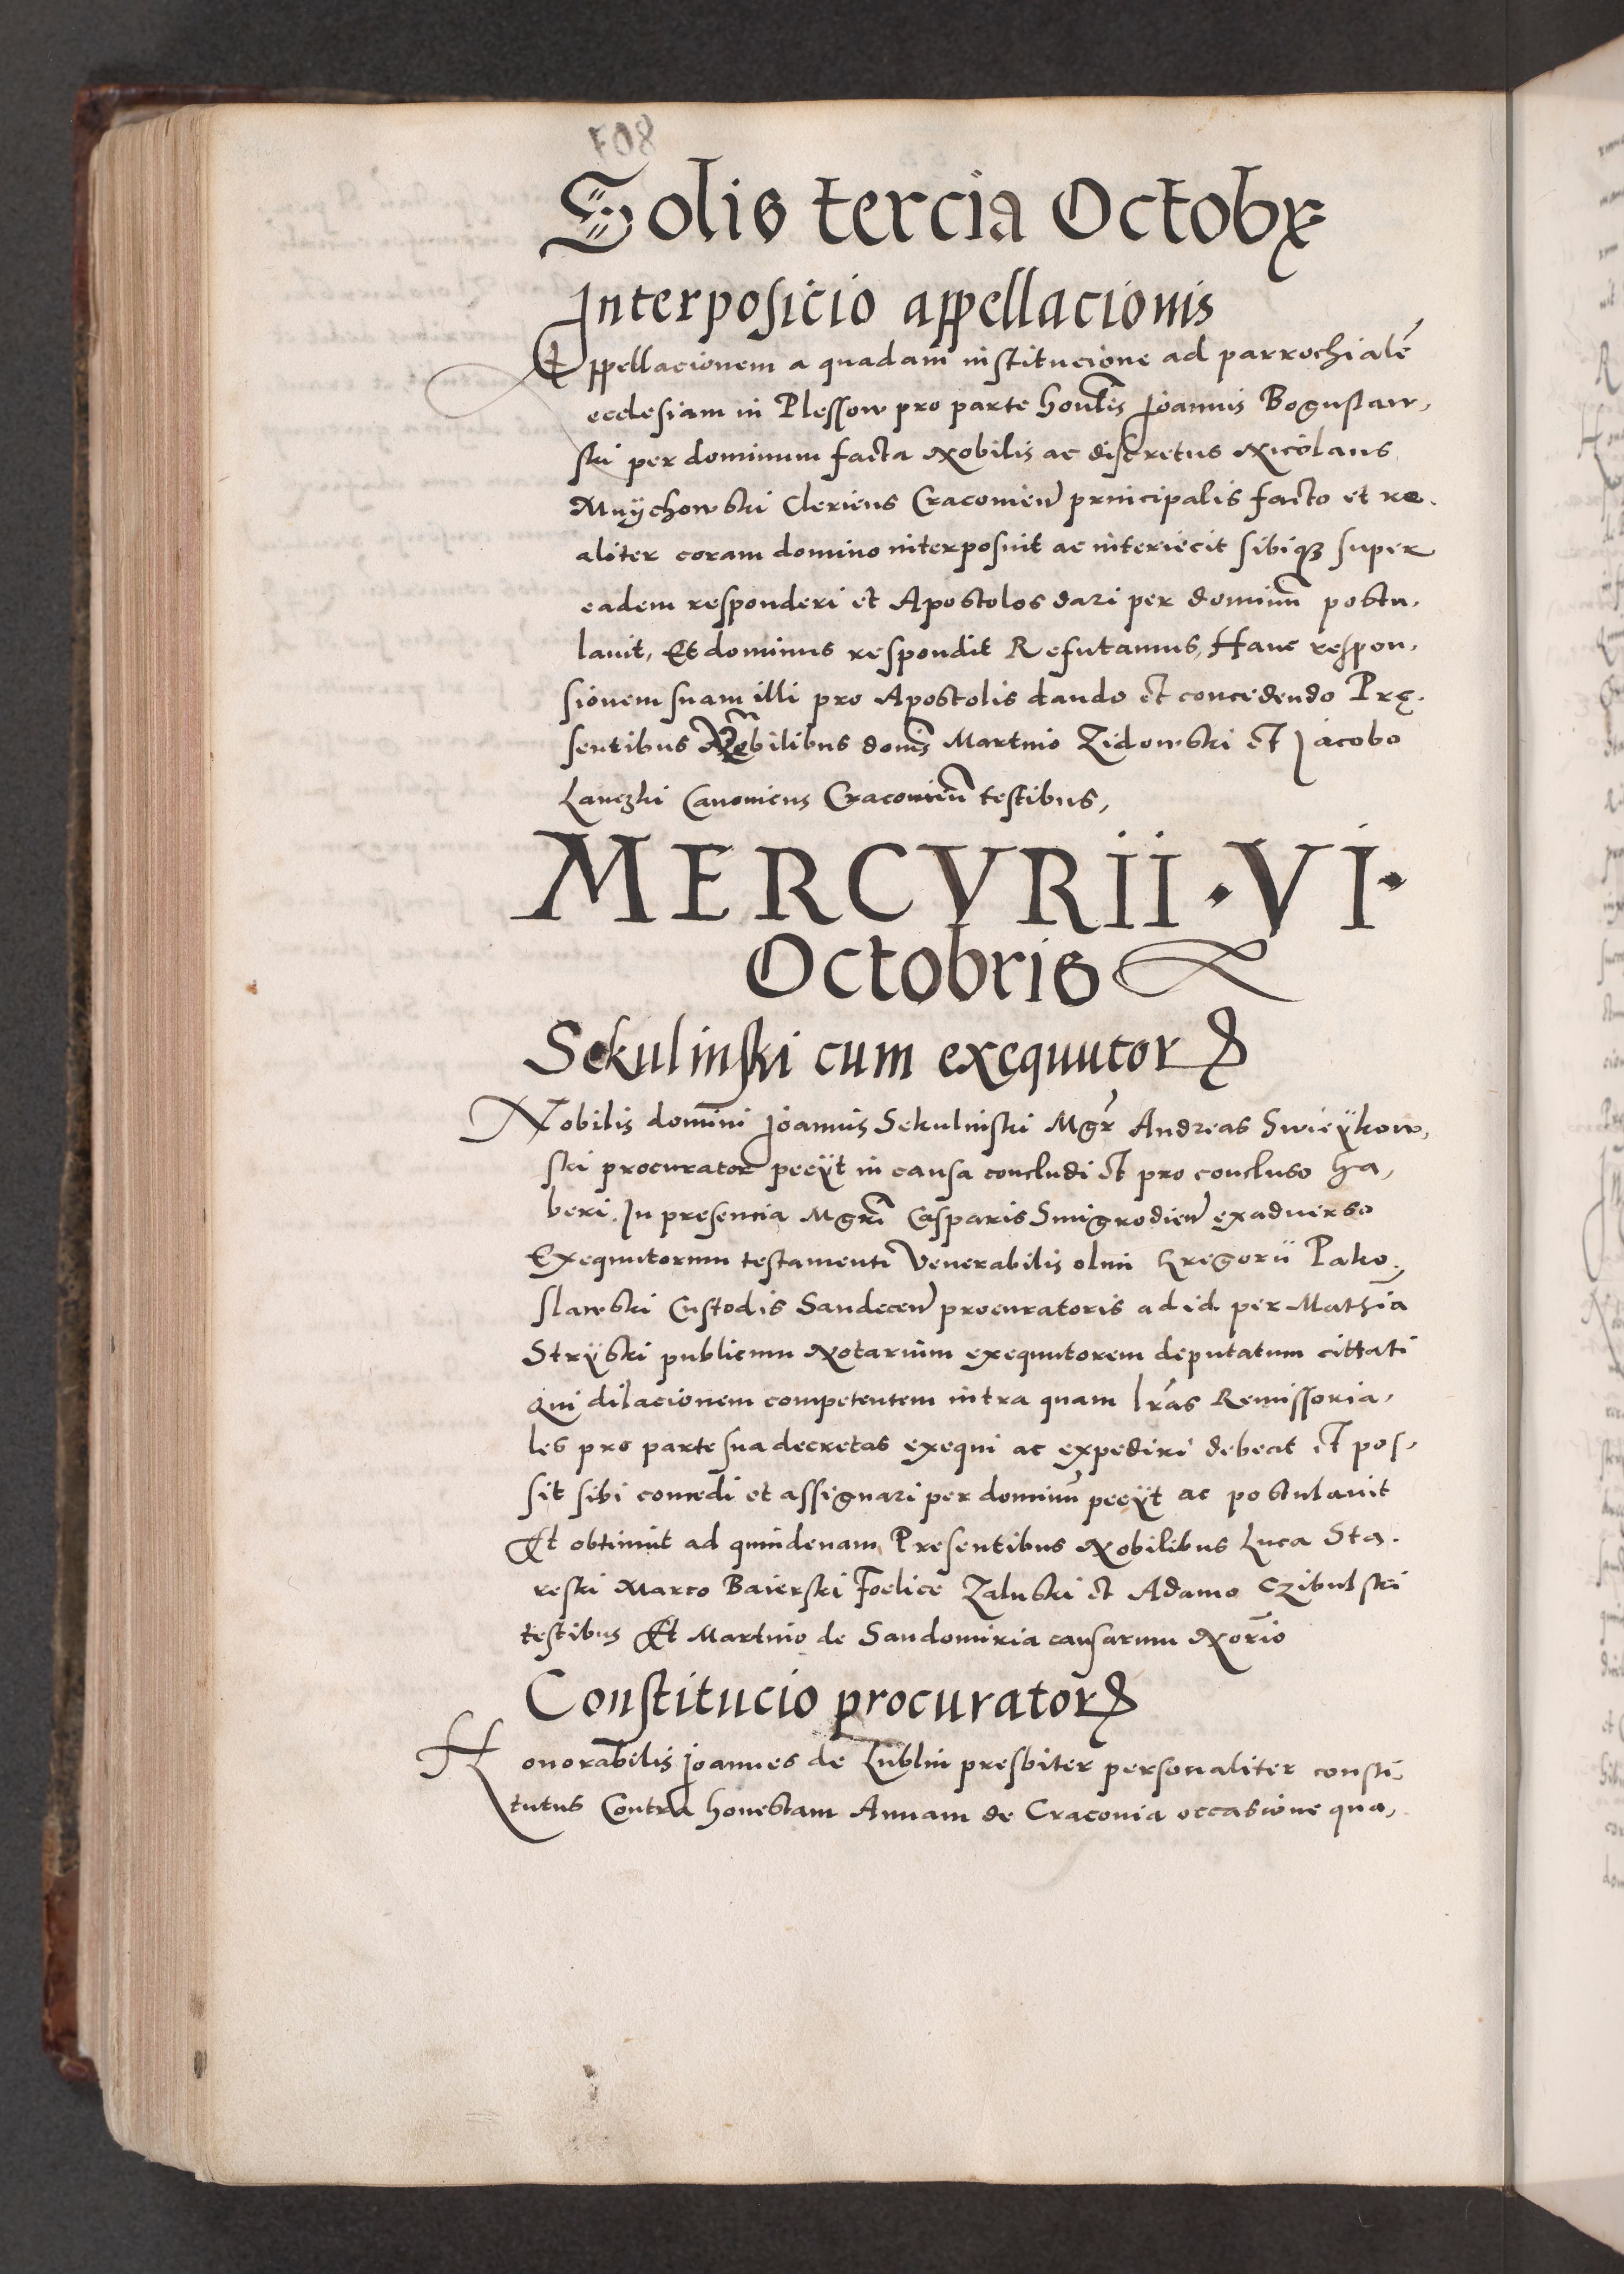 Solis tercia Octobr
Interposicio appellacionis
Appellacionem a quadam institucione ad parrochialē
ecclesiam in Plessow pro parte honlis Joannis Bogustaw,
ski per dominum facta Nobilis ac discretus Nicolaus
Muÿchowski Clericus Cracovien principalis facto et re,
aliter coram domino interposuit ac interiecit sibiqꝫ super
eadem responderi et Apostolos dari per dominū postu,
lavit, Et dominus respondit Refutamus, Hanc respon,
sionem suam illi pro Apostolis dando et concedendo Prę,
sentibus Nobilibus donis Martino Zidowski et Jacobo
Lanczki Canonicus Cracovień testibus,
MERCVRII · VI ·
Octobris
Sekulinski cum exequutorꝝ
Nobilis domini Joannis Sekulinski Mgr Andreas Swieÿkow,
ski procurator pecÿt in causa concludi et pro concluso ha,
beri. In presencia Mgri Casparis Smigrodien exadverso
Exequutorum testamenti Venerabilis olim Gregorii Pako,
slawski Custodis Sandecen procuratoris ad id per Mathiā
Strÿski publicum Notarium exequutorem deputatum cittati
Qui dilacionem competentem intra quam lrās Remissoria,
les pro parte sua decretas exequi ac expediri debeat et pos,
sit sibi concedi et assignari per dominū pecÿt ac postulavit
Et obtinuit ad quindenam, Presentibus Nobilibus Luca Sta,
reski Marco Baierski Foelice Zaluski et Adamo Czibulski
testibus Et Martino de Sandomiria causarum Norio
Constitucio procuratorꝝ
Honorabilis Joannes de Lublin presbiter personaliter consti,
tutus Contra honestam Annam de Cracovia occasione qua,